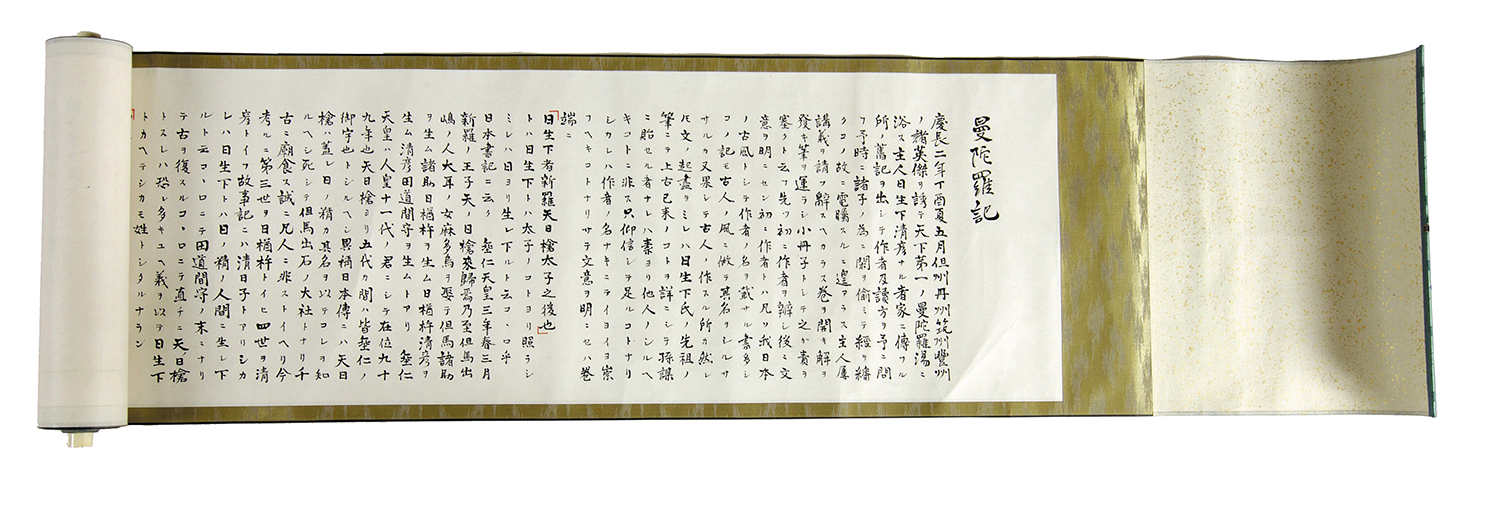 曼陀羅記
慶長二年丁酉夏五月但州丹州筑州豐州
ノ諸英傑ヲ誘テ天下第一ノ曼陀羅湯ニ
浴ス主人日生下清彦ナル者家ニ傳フル
所ノ舊記ヲ出シテ作者及讀方ヲ予ニ問
フ予時ニ諸子ノ為ニ閑ヲ偷ミテ經ヲ繙
クコノ故ニ電矚スルニ遑アラス主人屢
講義ヲ請フ辭スヘカラス卷ヲ開キ解ヲ
發キ筆ヲ運ラシ小冊子トシテ之カ責ヲ
塞クト云フ先ツ初ニ作者ヲ辨シ後ニ文
意ヲ明ニセン初ニ作者トハ凡ソ我日本
ノ古風トシテ作者ノ名ヲ載サル書多シ
コノ記モ古人ノ風ニ倣テ其名ヲシルサ
サルカ又果シテ古人ノ作スル所カ然レ
𪜈文ノ起盡ヲミレハ日生下氏ノ先祖ノ
筆ニテ上古已来ノコトヲ詳ニシテ孫謀
ニ貽セル者ナレハ素ヨリ他人ノシルヘ
キコトニ非ス只仰信シテ足ルコトナリ
シカレハ作者ノ名ナキニテイヨイヨ崇
フヘキコトナリサテ文意ヲ明ニセハ卷
端ニ
日生下者新羅天日槍太子之後也
トハ日生下トハ太子ノコトヨリ照ラシ
ミレハ日ヨリ生レ下ルト云コヽロ乎
日本書記ニ云ク 埀仁天皇三年春三月
新羅ノ王子天ノ日槍來歸焉乃至但馬出
嶋ノ人大耳ノ女麻多烏ヲ娶テ但馬諸助
ヲ生ム諸助日楢杵ヲ生ム日楢杵清彦ヲ
生ム清彦田道間守ヲ生ムトアリ 埀仁
天皇ハ人皇十一代ノ君ニシテ在位九十
九年也天日槍ヨリ五代カ間ハ皆埀仁ノ
御宇也トシルヘシ異稱日本傳ニハ天日
槍ハ蓋シ日ノ精カ其名ヲ以テコレヲ知
ルヘシ死シテ但馬出石ノ大社トナリ千
古ニ廟食ス誠ニ凡人ニ非ストイヘリ今
考ルニ第三世ヲ日楢杵トイヒ四世ヲ清
彦トイフ故事記ニハ清日子トアリシカ
レハ日生下トハ日ノ精ノ人間ニ生レ下
ルト云コヽロニテ田道間守ノ末ニナリ
テ古ヲ復スルコヽロニテ直チニ天日槍
トスレハ恐レ多キユヘ義ヲ以テ日生下
トカヘテシカモ姓トシタルナラン